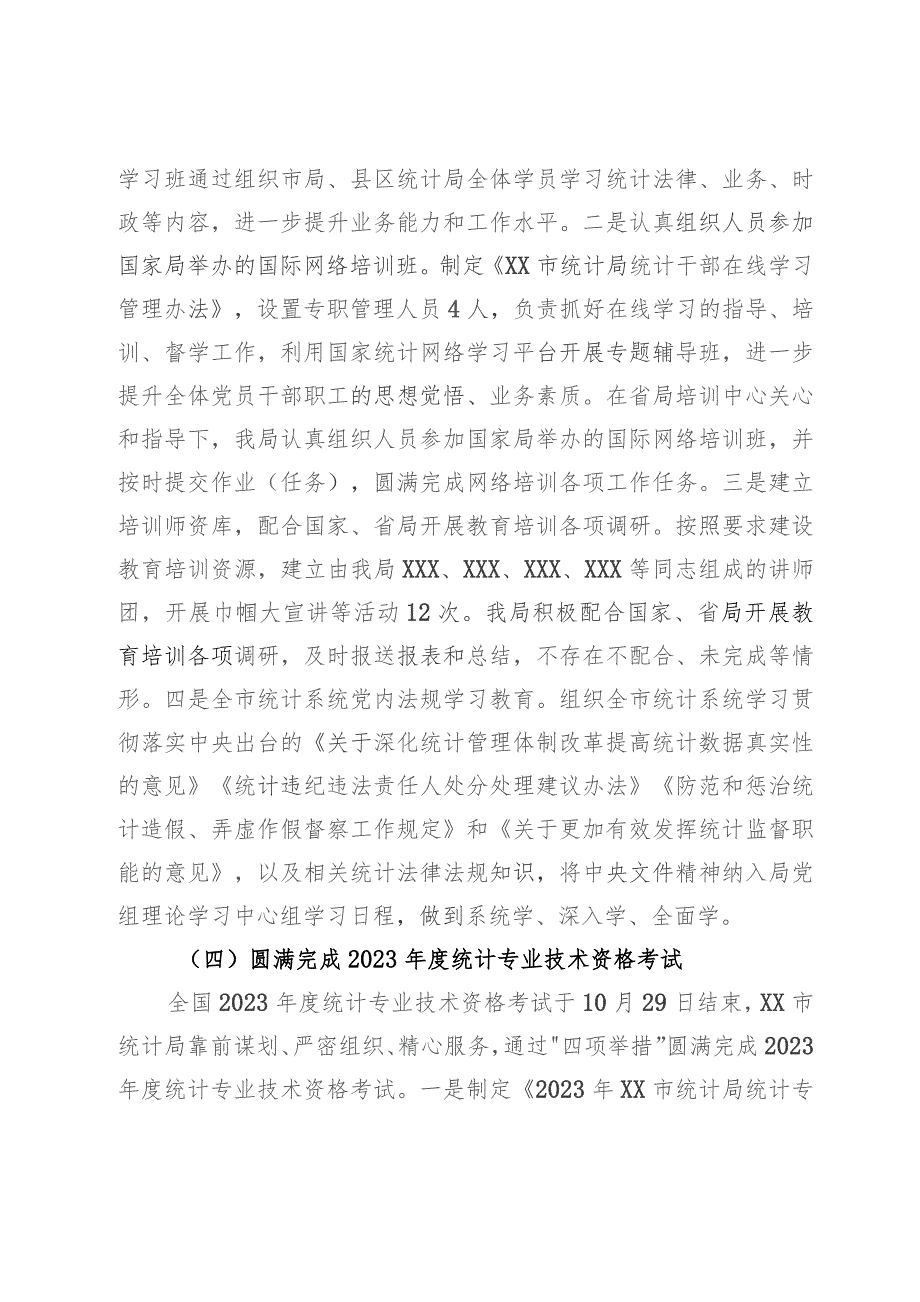 学习班通过组织市局、县区统计局全体学员学习统计法律、业务、时
政等内容，进一步提升业务能力和工作水平。二是认真组织人员参加
国家局举办的国际网络培训班。制定《XX 市统计局统计干部在线学习
管理办法》，设置专职管理人员 4 人，负责抓好在线学习的指导、培
训、督学工作，利用国家统计网络学习平台开展专题辅导班，进一步
提升全体党员干部职工的思想觉悟、业务素质。在省局培训中心关心
和指导下，我局认真组织人员参加国家局举办的国际网络培训班，并
按时提交作业（任务），圆满完成网络培训各项工作任务。三是建立
培训师资库，配合国家、省局开展教育培训各项调研。按照要求建设
教育培训资源，建立由我局 XXX、XXX、XXX、XXX 等同志组成的讲师
团，开展巾帼大宣讲等活动 12 次。我局积极配合国家、省局开展教
育培训各项调研，及时报送报表和总结，不存在不配合、未完成等情
形。四是全市统计系统党内法规学习教育。组织全市统计系统学习贯
彻落实中央出台的《关于深化统计管理体制改革提高统计数据真实性
的意见》《统计违纪违法责任人处分处理建议办法》《防范和惩治统
计造假、弄虚作假督察工作规定》和《关于更加有效发挥统计监督职
能的意见》，以及相关统计法律法规知识，将中央文件精神纳入局党
组理论学习中心组学习日程，做到系统学、深入学、全面学。
（四）圆满完成 2023 年度统计专业技术资格考试
全国 2023 年度统计专业技术资格考试于 10 月 29 日结束，XX 市
统计局靠前谋划、严密组织、精心服务，通过"四项举措”圆满完成 2023
年度统计专业技术资格考试。一是制定《2023 年 XX 市统计局统计专